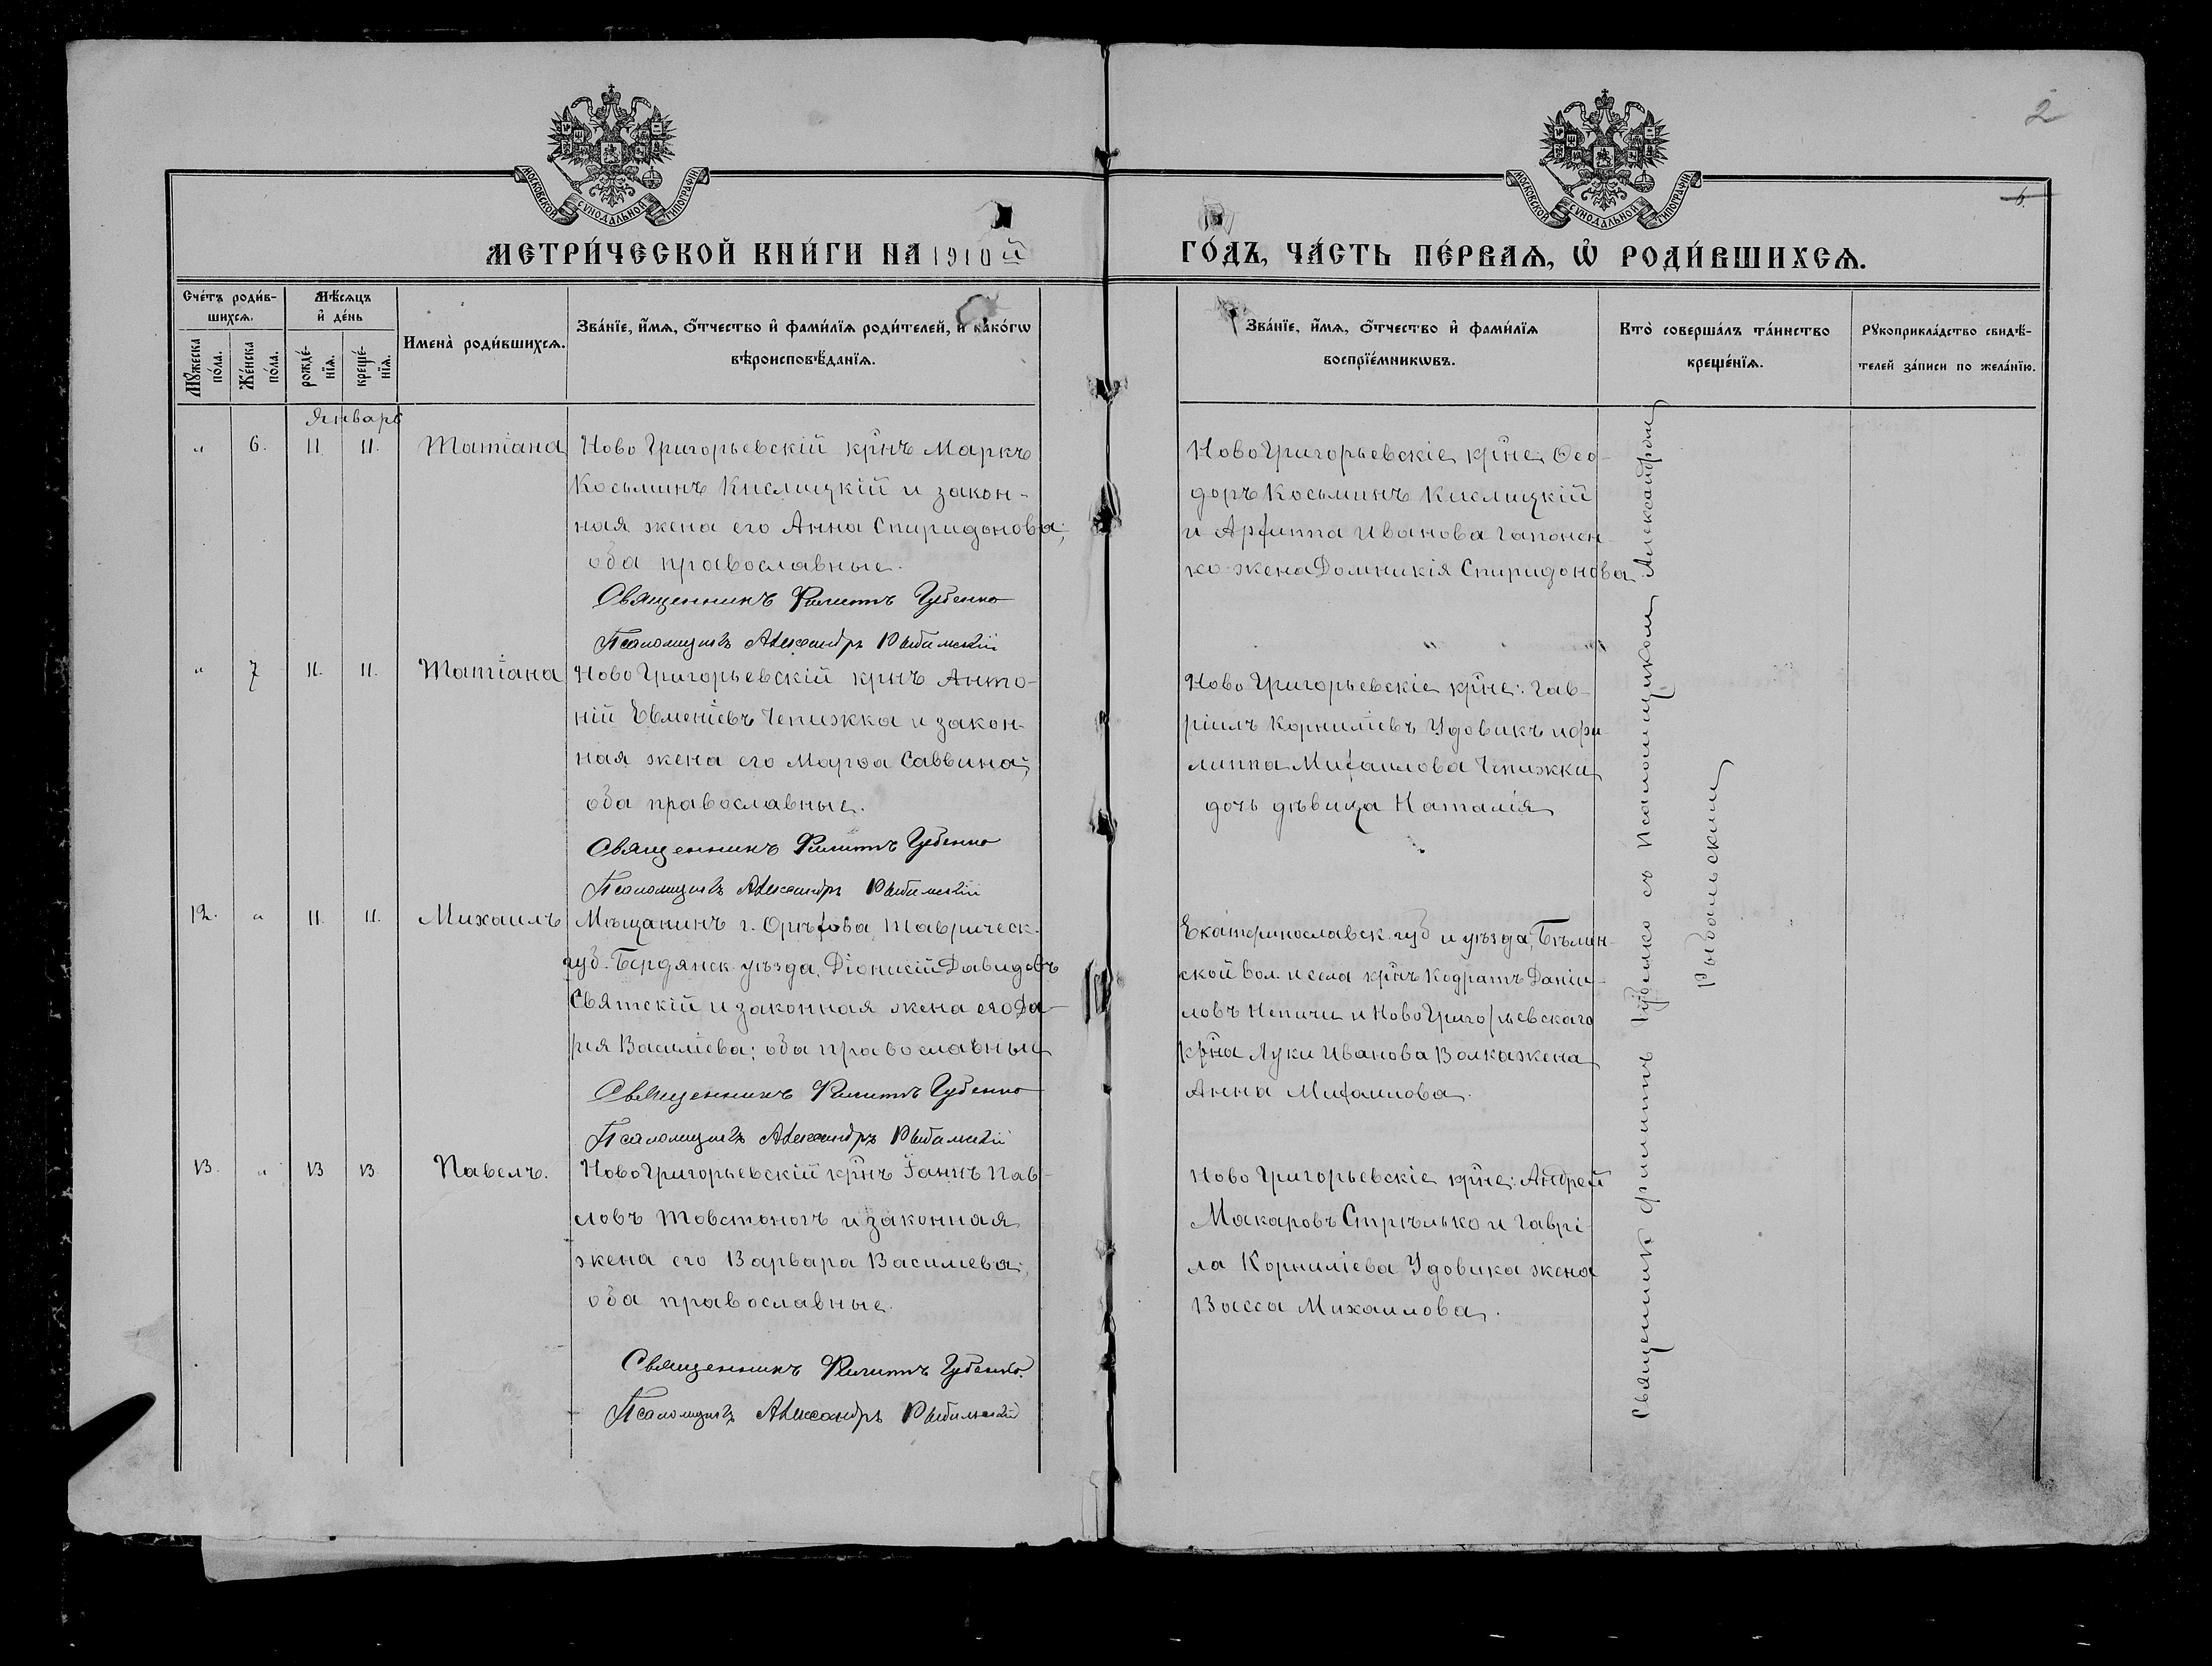 2
6.
МОСКОВСКОЙ СѴНОДАЛЬНОЙ ТИПОГРАФІИ
МОСКОВСКОЙ СѴНОДАЛЬНОЙ ТИПОГРАФІИ
МЕТРИ́ЧЕСКОЙ КНИ́ГИ НА 1910й
ГО́ДЪ, ЧА́СТЬ ПЕ́РВАѦ, Ѡ҆ РОДИ́ВШИХСѦ.
Сче́тъ роди́в-
шихсѧ.
Мꙋ́жеска по́ла.
Же́нска по́ла.
Мѣ́сѧцъ
и҆ де́нь
рожде́-нїѧ.
креще́-нїѧ.
Имена̀ роди́вшихсѧ.
Зва́нїе, и҆́мѧ, ѻ҆́тчество и҆ фами́лїѧ роди́телей, и҆ како́гѡ
вѣроисповѣ́данїѧ.
Зва́нїе, и҆́мѧ, ѻ҆́тчество и҆ фами́лїѧ
воспрїе́мникѡвъ.
Кто̀ соверша́лъ та́инство
креще́нїѧ.
Рꙋкоприкла́дство свидѣ́-
телей за́писи по жела́нїю.
Январь
" 6. 11. 11. Татіана
Ново Григорьевскій кр҃нъ Маркъ
Косьминъ Кислицкій и закон-
ная жена его Анна Спиридонова;
оба православные.
Священникъ Филиппъ Губенко
Псаломщикъ Александръ Рыбальскій
Ново Григорьевскіе кр҃не: Ѳео-
доръ Косьминъ Кислицкій
и Архиппа Иванова Гапонен-
ко жена Домникія Спиридонова
" 7 11. 11. Татіана
Ново Григорьевскій крнъ Анто-
ній Евменіевъ Чепижка и закон-
ная жена его Марѳа Саввина;
оба православные.
Священникъ Филиппъ Губенко
Псаломщикъ Александръ Рыбальскій
Ново Григорьевскіе кр҃не: Гав-
ріилъ Корниліевъ Удовикъ и Фи-
липпа Михаилова Чепижки
дочь дѣвица Наталія
12. " 11. 11. Михаилъ
Мѣщанинъ г. Орѣхова, Таврическ.
губ. Бердянск. уѣзда, Діонисій Давидовъ
Святскій и законная жена его Да-
рія Василіева; оба православные
Священникъ Филиппъ Губенко
Псаломщикъ Александръ Рыбальскій
Екатеринославск. губ и уѣзда, Бѣлен-
ской вол. и села кр҃нъ Кодратъ Даніи-
ловъ и Ново Григорьевскаго
кр҃на Луки Иванова Волка жена
Анна Михаилова.
13. " 13 13. Павелъ.
Ново Григорьевскій кр҃нъ Іоаннъ Пав-
ловъ Товстоногъ и законная
жена его Варвара Василіева;
оба православные.
Священникъ Филиппъ Губенко.
Псаломщикъ Александръ Рыбальскій
Ново Григорьевскіе кр҃не: Андрей
Макаровъ Стрѣлько и Гаврі-
ла Корниліева Удовика жена
Васса Михаилова.
Священникъ Филиппъ Губенко съ Псаломщиком Александром
Рыбальским